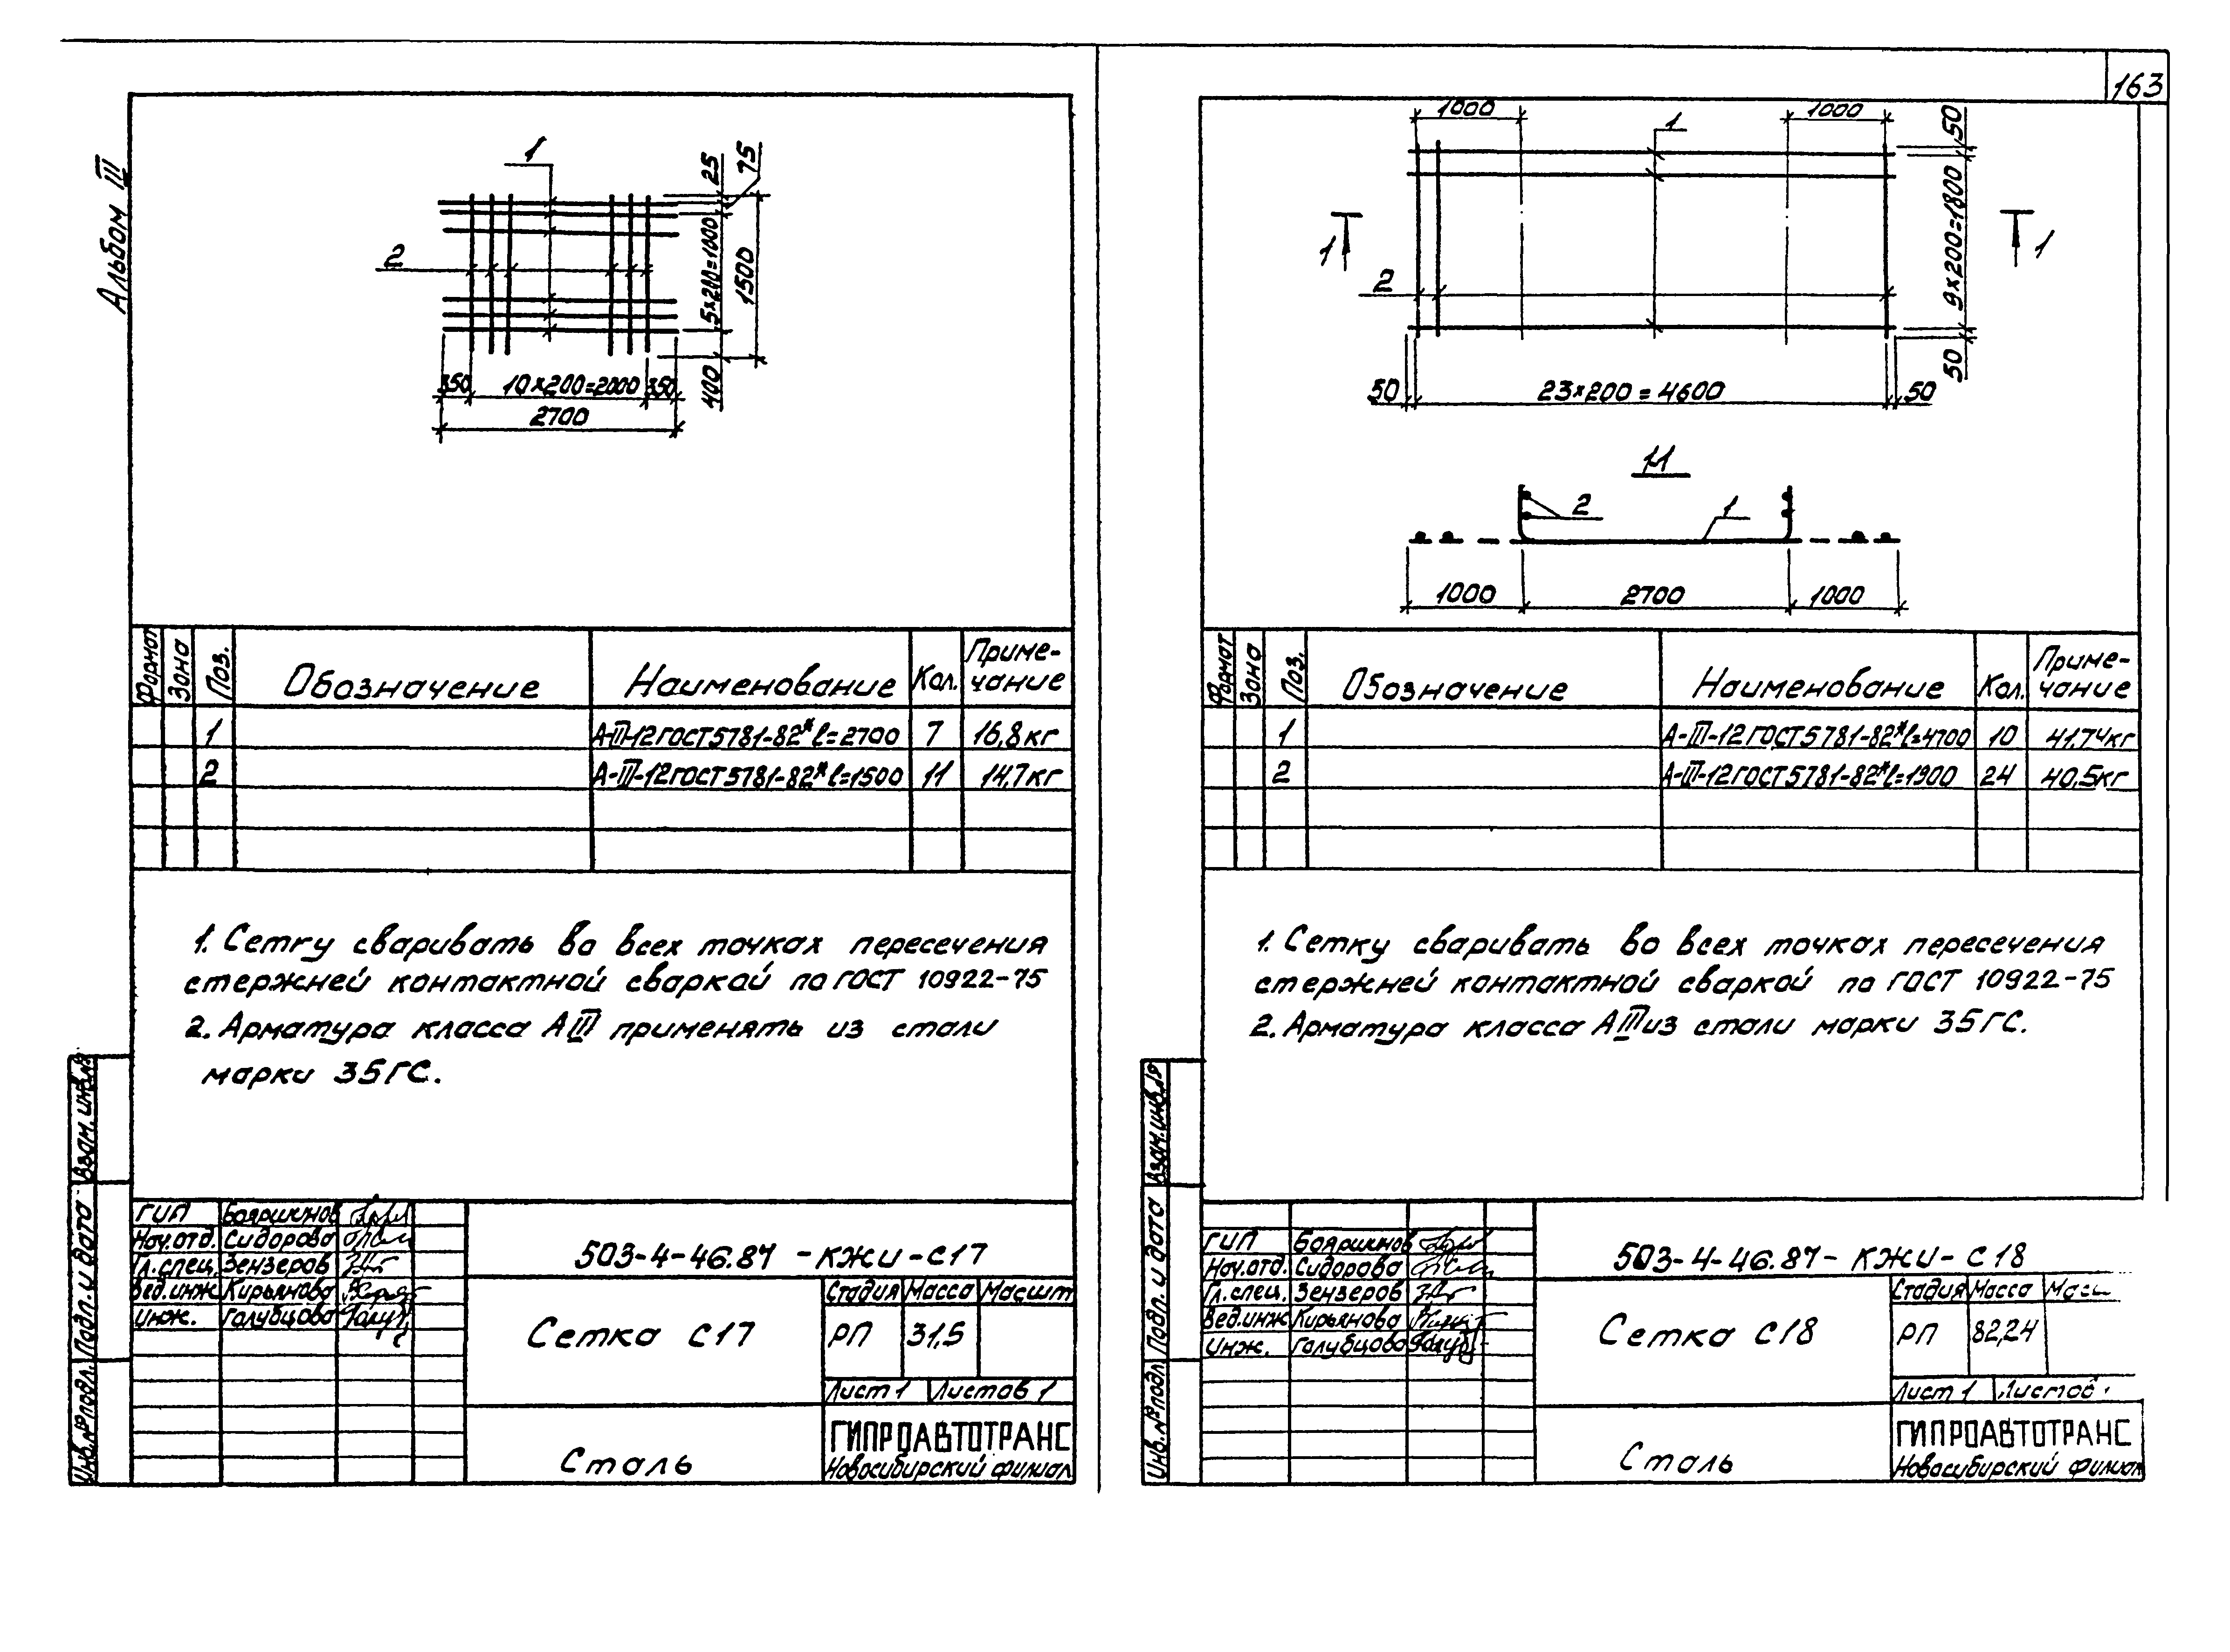 163
Альбом III
1
2
25
75
5×200=1000
1500
400
350
10×200=2000
350
2700
Формат
Зона
Поз.
Обозначение
Наименование
Кол.
Приме-
чание
1 А-III-12 ГОСТ 5781-82* ℓ=2700 7 16,8кг
2 А-III-12 ГОСТ 5781-82* ℓ=1500 11 14,7кг
1. Сетку сваривать во всех точках пересечения
стержней контактной сваркой по ГОСТ 10922-75
2. Арматура класса АIII применять из стали
марки 35ГС.
Взам. инв.№
Подп. и дата
Инв.№подл.
ГИП Бояринов
Нач.отд. Сидорова
Гл.спец. Зензеров
Вед.инж Кирьянова
Инж. Голубцова
503-4-46.87 - КЖИ - С17
Сетка С17
Стадия Масса Масшт
РП 31,5
Лист 1 Листов 1
Сталь
ГИПРОАВТОТРАНС
Новосибирский филиал
1000
1
1000
50
9×200=1800
50
1
1
2
50
23×200=4600
50
1-1
2
1
1000
2700
1000
Формат
Зона
Поз.
Обозначение
Наименование
Кол.
Приме-
чание
1 А-III-12 ГОСТ 5781-82* ℓ=4700 10 41,74кг
2 А-III-12 ГОСТ 5781-82* ℓ=1900 24 40,5кг
1. Сетку сваривать во всех точках пересечения
стержней контактной сваркой по ГОСТ 10922-75
2. Арматура класса АIII из стали марки 35ГС.
Взам.инв.№
Подп. и дата
Инв.№подл
ГИП Бояринов
Нач.отд. Сидорова
Гл.спец. Зензеров
Вед.инж Кирьянова
Инж. Голубцова
503-4-46.87 - КЖИ - С18
Сетка С18
Стадия Масса
РП 82,24
Лист 1 Листов
Сталь
ГИПРОАВТОТРАНС
Новосибирский филиал